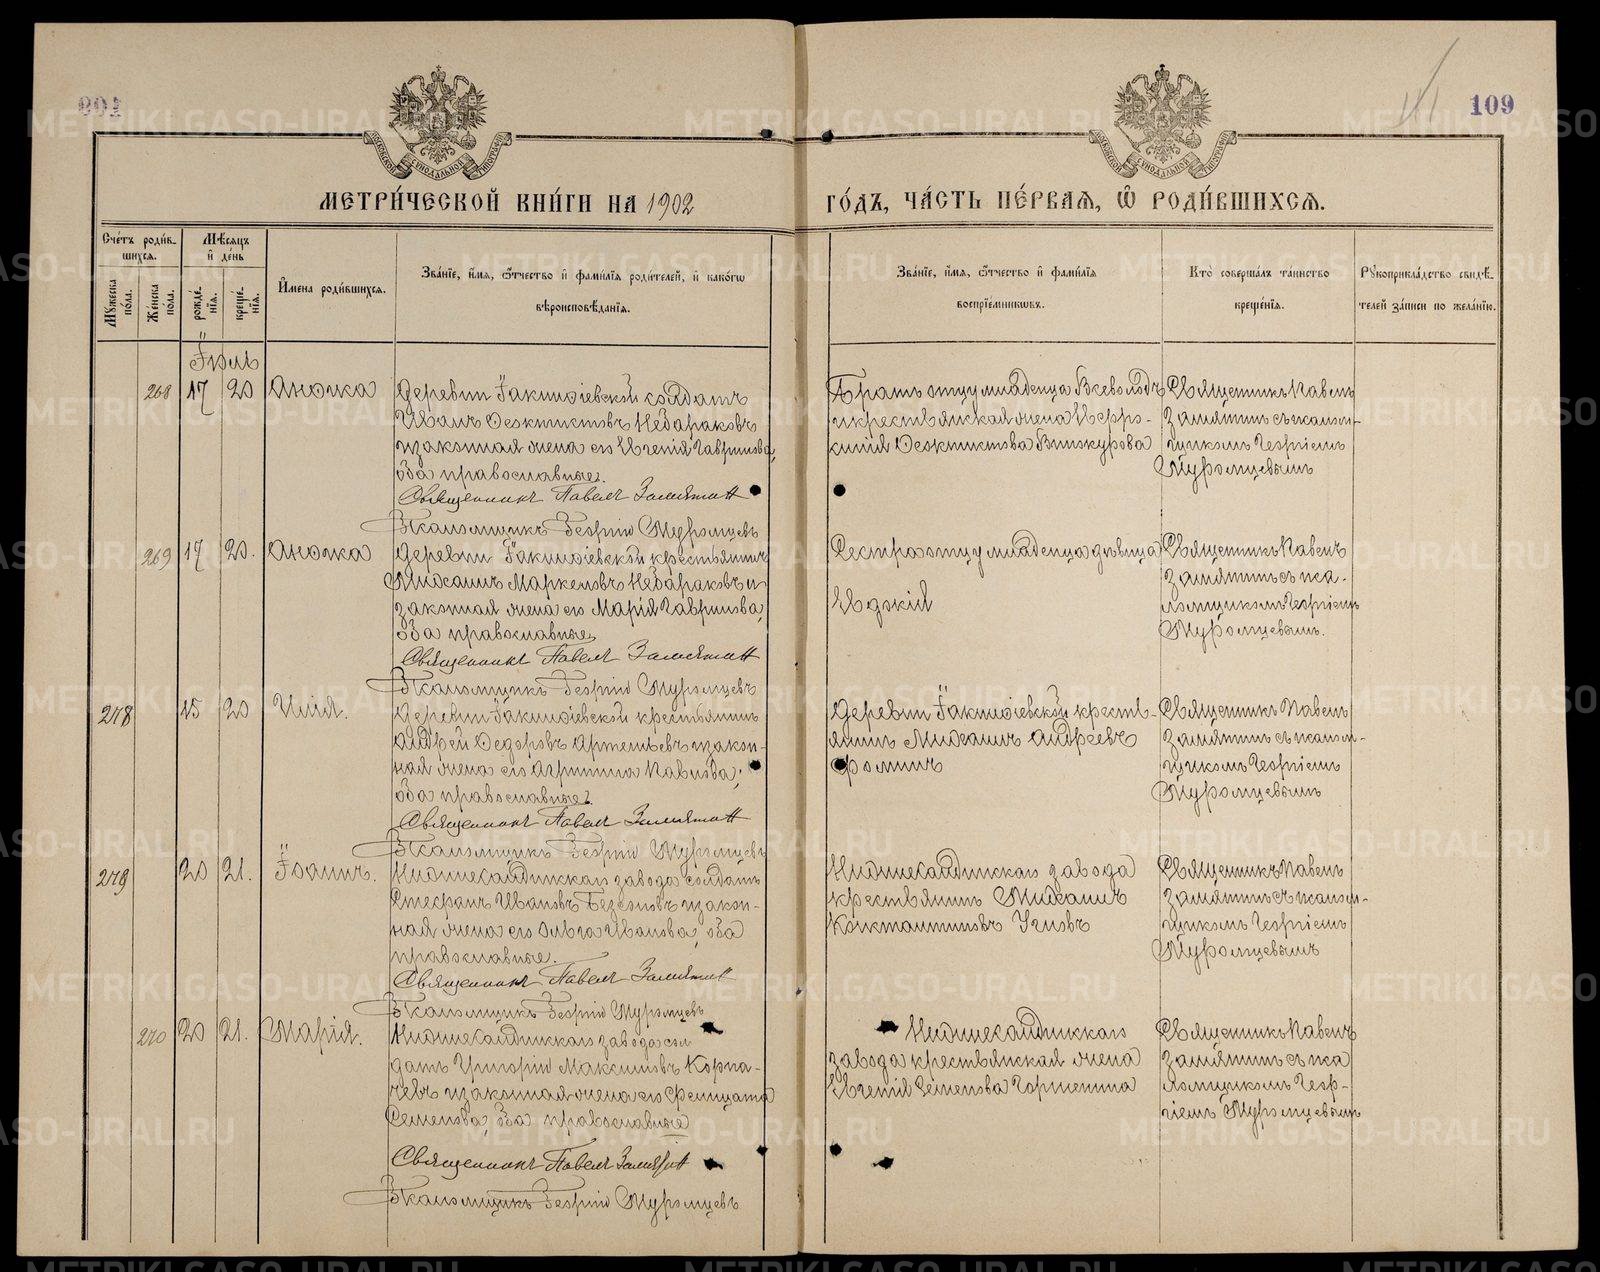 109
МОСКОВСКОЙ СѴНОДАЛЬНОЙ ТИПОГРАФІИ
МОСКОВСКОЙ СѴНОДАЛЬНОЙ ТИПОГРАФІИ
МЕТРИ́ЧЕСКОЙ КНИ́ГИ НА 1902
ГО́ДЪ, ЧА́СТЬ ПЕ́РВАЯ, Ѿ РОДИ́ВШИХСЯ.
Сче́тъ роди́в-
шихся.
Мꙋжеска по́ла.
Же́нска по́ла.
Мѣ́сяцъ и҆ де́нь
рожде́нїя.
креще́нїя.
И҆мена роди́вшихся.
Зва́нїе, и҆́мя, ѻ҆́тчество и҆ фами́лїя роди́телей, и҆ како́гѡ
вѣроисповѣ́данїя.
Зва́нїе, и҆́мя, ѻ҆́тчество и҆ фами́лїя
воспрїе́мникѡвъ.
Кто̀ соверша́лъ та́инство
креще́нїя.
Рꙋкоприкла́дство свидѣ́-
телей за́писи по жела́нїю.
Іюль
268 17 20 Анфиса
Деревни Іакинѳіевской солдатъ
Иванъ Ѳеоктистовъ
и законная жена его Евгенія Гаврилова,
оба православные.
Священникъ Павелъ Замятин
Псаломщикъ Георгій Муромцевъ
Братъ отцу младенца Всеволодъ
и крестьянская жена
Ѳеоктистова Винокурова
Священникъ Павелъ
Замятинъ съ псалом-
щикомъ Георгіемъ
Муромцевымъ
269 17 20. Анфиса
Деревни Іакинѳіевской крестьянинъ
Михаилъ Маркеловъ и
законная жена его Марія Гаврилова,
оба православные.
Священникъ Павелъ Замятин
Псаломщикъ Георгій Муромцевъ
Сестра отцу младенца дѣвица
Евдокія
Священникъ Павелъ
Замятинъ съ пса-
ломщикомъ Георгіемъ
Муромцевымъ.
278 15 20 Илія.
Деревни Іакинѳіевской крестьянинъ
Андрей Ѳедоровъ Артемьевъ и закон-
ная жена его Агрипина Павлова,
оба православные.
Священникъ Павелъ Замятин
Псаломщикъ Георгій Муромцевъ
Деревни Іакинѳіевской кресть-
янинъ Михаилъ Андреевъ
Ѳоминъ
Священникъ Павелъ
Замятинъ съ псалом-
щикомъ Георгіемъ
Муромцевымъ
279 20 21. Іоаннъ.
Нижнесалдинскаго завода солдатъ
Стефанъ Ивановъ Безсоновъ и закон-
ная жена его Ольга Иванова, оба
православные.
Священникъ Павелъ Замятин
Псаломщикъ Георгій Муромцевъ
Нижнесалдинскаго завода
крестьянинъ Михаилъ
Константиновъ
Священникъ Павелъ
Замятинъ съ псалом-
щикомъ Георгіемъ
Муромцевымъ
270 20 21. Марія.
Нижнесалдинскаго завода сол
датъ Григорій Максимовъ Корпа-
чевъ и законная жена его Фелицата
Семенова, оба православные
Священникъ Павелъ Замятин
Псаломщикъ Георгій Муромцевъ
Нижнесалдинскаго
завода крестьянская жена
Евгенія Семенова
Священникъ Павелъ
Замятинъ съ пса
ломщикомъ Геор-
гіемъ Муромцевымъ
METRIKI.GASO-URAL.RU